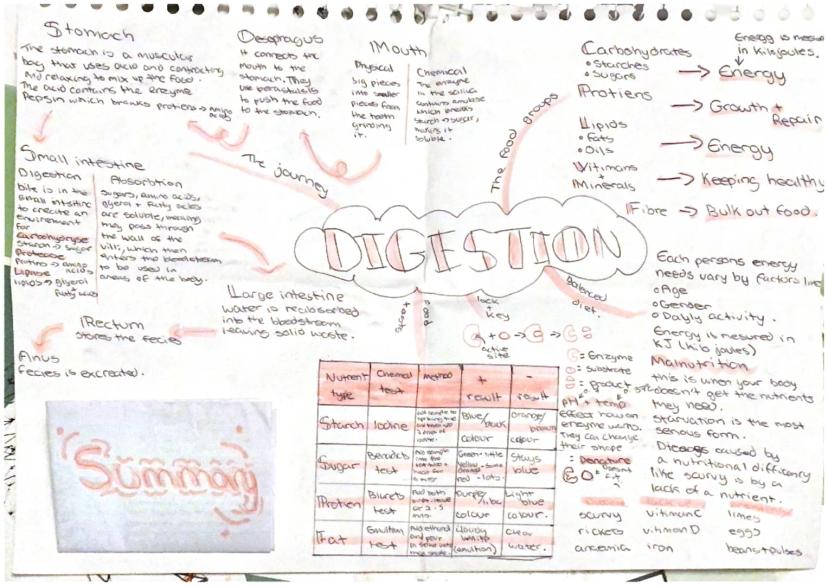 Stomach
The stomach is a muscular
bag that uses acid and contracting
and relaxing to mix up the food.
The acid contains the enzyme
Pepsin which breaks protiens → amino
acids
Oesophagus
It connects the
mouth to the
stomach. They
use peristalsis
to push the food
to the stomach.
Mouth
Physical
big pieces
into smaller
pieces from
the tooth
grinding
it.
Chemical
The enzyme
in the saliva
contains
which breaks
starch → sugar,
making it
soluble.
The journey
Small intestine
Digestion
bile is in the
small intestine
to create an
for
Carbohydrase
starch → sugar
Protease
protiens → amino
acids
Lipase
lipids → glycerol
+ fatty acids
Absorbtion
sugars, amino acids,
glycerol + fatty acids
are soluble, meaning
they pass through
the wall of the
villi, which then
enters the bloodstream
to be used in
areas of the body.
Large intestine
Water is reabsorbed
into the bloodstream
leaving solid waste.
Rectum
stores the fecies
Anus
fecies is excreated.
Summary
DIGESTION
The food groups
Carbohydrates
• Starches
• Sugars
→ Energy
Energy is
in Kilojoules.
Protiens
→ Growth +
Repair
Lipids
• Fats
• Oils
→ Energy
Vitimans
+
Minerals
→ Keeping healthy
Fibre → Bulk out food.
Balanced
diet.
Each persons energy
needs vary by factors
• Age
• Gender
• Dayly activity.
Energy is mesured in
KJ (kilo joules)
Malnutrition
this is when your body
doesn't get the nutrients
they need.
Starvation is the most
serious form.
caused by
a nutritional
like scurvy is by a
lack of a nutrient.
scurvy vitimin C limes
rickets vitiman D eggs
anaemia iron beans + pulses
lock
+
key
active
site
= Enzyme
= substrate
= product
pH + temp
effect how an
enzyme works.
They can change
their shape
= Denature
Doesnt
fit
Nutrient type Chemical test method + result - result
Starch Iodine Blue/black colour Orange/ colour
Sugar Benedicts test Green - little Yellow - some red - lots. Stays blue
Protien Biurets test Purple/lilac colour Light blue colour.
Fat Emultion test Cloudy white (emultion) Clear water.